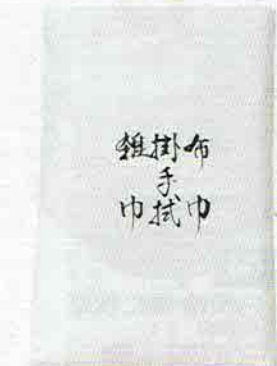 布巾
掛手拭
雑巾